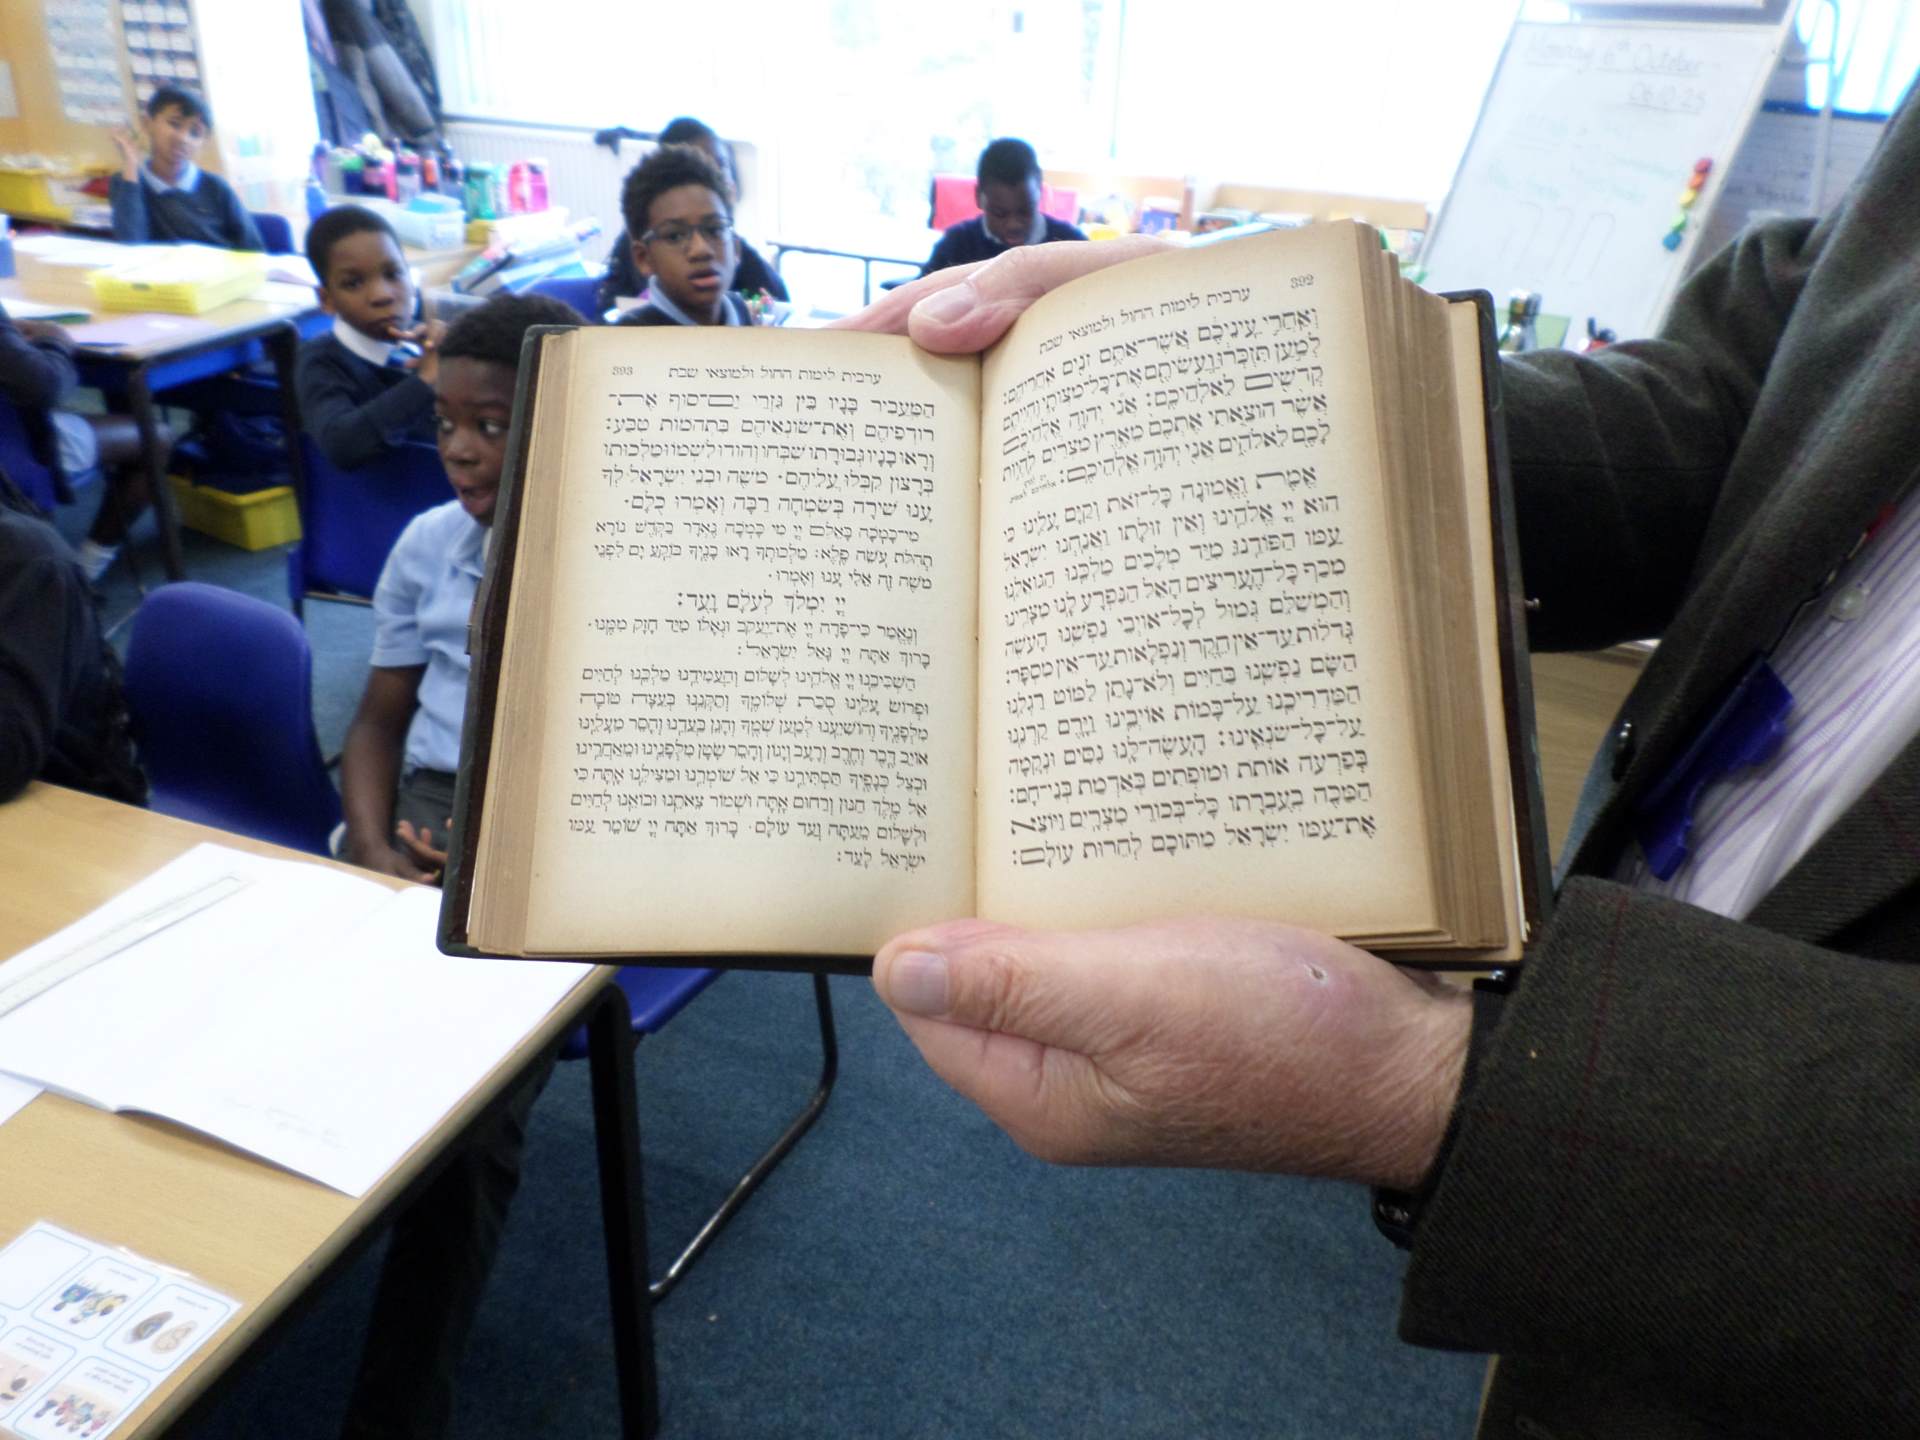 392
ערבית לימות החול ולמוצאי שבת
וְאַחֲרֵי עֵינֵיכֶם אֲשֶׁר־אַתֶּם זֹנִים אַחֲרֵיהֶם:
לְמַעַן תִּזְכְּרוּ וַעֲשִׂיתֶם אֶת־כָּל־מִצְוֹתָי וִהְיִיתֶם
קְדֹשִׁים לֵאלֹהֵיכֶם: אֲנִי יְהוָה אֱלֹהֵיכֶם
אֲשֶׁר הוֹצֵאתִי אֶתְכֶם מֵאֶרֶץ מִצְרַיִם לִהְיוֹת
לָכֶם לֵאלֹהִים אֲנִי יְהוָה אֱלֹהֵיכֶם:
אֱמֶת וֶאֱמוּנָה כָּל־זֹאת וְקַיָּם עָלֵינוּ כִּי
הוּא יְיָ אֱלֹהֵינוּ וְאֵין זוּלָתוֹ וַאֲנַחְנוּ יִשְׂרָאֵל
עַמּוֹ הַפּוֹדֵנוּ מִיַּד מְלָכִים מַלְכֵּנוּ הַגּוֹאֲלֵנוּ
מִכַּף כָּל־הֶעָרִיצִים הָאֵל הַנִּפְרָע לָנוּ מִצָּרֵינוּ
וְהַמְשַׁלֵּם גְּמוּל לְכָל־אוֹיְבֵי נַפְשֵׁנוּ הָעֹשֶׂה
גְדֹלוֹת עַד־אֵין חֵקֶר וְנִפְלָאוֹת עַד־אֵין מִסְפָּר:
הַשָּׂם נַפְשֵׁנוּ בַּחַיִּים וְלֹא־נָתַן לַמּוֹט רַגְלֵנוּ
הַמַּדְרִיכֵנוּ עַל־בָּמוֹת אוֹיְבֵינוּ וַיָּרֶם קַרְנֵנוּ
עַל־כָּל־שֹׂנְאֵינוּ: הָעֹשֶׂה־לָּנוּ נִסִּים וּנְקָמָה
בְּפַרְעֹה אוֹתֹת וּמוֹפְתִים בְּאַדְמַת בְּנֵי־חָם:
הַמַּכֶּה בְעֶבְרָתוֹ כָּל־בְּכוֹרֵי מִצְרָיִם וַיּוֹצֵא
אֶת־עַמּוֹ יִשְׂרָאֵל מִתּוֹכָם לְחֵרוּת עוֹלָם:
393
ערבית לימות החול ולמוצאי שבת
הַמַּעֲבִיר בָּנָיו בֵּין גִּזְרֵי יַם־סוּף אֶת־
רוֹדְפֵיהֶם וְאֶת־שׂוֹנְאֵיהֶם בִּתְהֹמוֹת טִבַּע:
וְרָאוּ בָנָיו גְּבוּרָתוֹ שִׁבְּחוּ וְהוֹדוּ לִשְׁמוֹ וּמַלְכוּתוֹ
בְּרָצוֹן קִבְּלוּ עֲלֵיהֶם· משֶׁה וּבְנֵי יִשְׂרָאֵל לְךָ
עָנוּ שִׁירָה בְּשִׂמְחָה רַבָּה וְאָמְרוּ כֻלָּם·
מִי־כָמֹכָה בָּאֵלִם יְיָ מִי כָּמֹכָה נֶאְדָּר בַּקֹּדֶשׁ נוֹרָא
תְהִלֹּת עֹשֵׂה פֶלֶא: מַלְכוּתְךָ רָאוּ בָנֶיךָ בּוֹקֵעַ יָם לִפְנֵי
משֶׁה זֶה אֵלִי עָנוּ וְאָמְרוּ·
יְיָ יִמְלֹךְ לְעֹלָם וָעֶד:
וְנֶאֱמַר כִּי־פָדָה יְיָ אֶת־יַעֲקֹב וּגְאָלוֹ מִיַּד חָזָק מִמֶּנּוּ·
בָּרוּךְ אַתָּה יְיָ גָּאַל יִשְׂרָאֵל:
הַשְׁכִּיבֵנוּ יְיָ אֱלֹהֵינוּ לְשָׁלוֹם וְהַעֲמִידֵנוּ מַלְכֵּנוּ לְחַיִּים
וּפְרוֹשׂ עָלֵינוּ סֻכַּת שְׁלוֹמֶךָ וְתַקְּנֵנוּ בְּעֵצָה טוֹבָה
מִלְּפָנֶיךָ וְהוֹשִׁיעֵנוּ לְמַעַן שְׁמֶךָ וְהָגֵן בַּעֲדֵנוּ וְהָסֵר מֵעָלֵינוּ
אוֹיֵב דֶּבֶר וְחֶרֶב וְרָעָב וְיָגוֹן וְהָסֵר שָׂטָן מִלְּפָנֵינוּ וּמֵאַחֲרֵינוּ
וּבְצֵל כְּנָפֶיךָ תַּסְתִּירֵנוּ כִּי אֵל שׁוֹמְרֵנוּ וּמַצִּילֵנוּ אָתָּה כִּי
אֵל מֶלֶךְ חַנּוּן וְרַחוּם אָתָּה וּשְׁמוֹר צֵאתֵנוּ וּבוֹאֵנוּ לְחַיִּים
וּלְשָׁלוֹם מֵעַתָּה וְעַד עוֹלָם· בָּרוּךְ אַתָּה יְיָ שׁוֹמֵר עַמּוֹ
יִשְׂרָאֵל לָעַד:
Monday 6th October
06.10.25